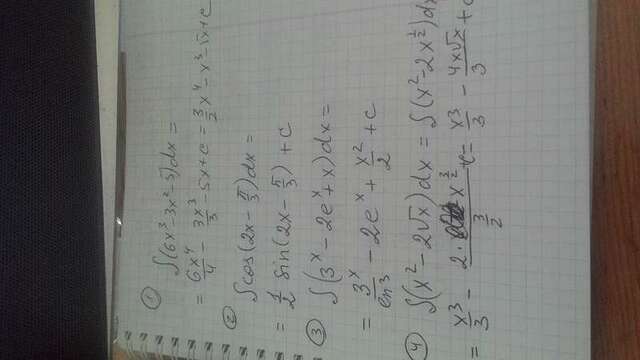 ① ∫(6x³-3x²-5)dx =
= 6x⁴/4 - 3x³/3 - 5x + c = 3/2 x⁴ - x³ - 5x + c
② ∫cos(2x - π/3)dx =
= 1/2 sin(2x - π/3) + c
③ ∫(3ˣ - 2eˣ + x)dx =
= 3ˣ/ln3 - 2eˣ + x²/2 + c
④ ∫(x² - 2√x)dx = ∫(x² - 2x^(1/2))dx
= x³/3 - 2·x^(3/2)/(3/2) + c = x³/3 - 4x√x/3 + c